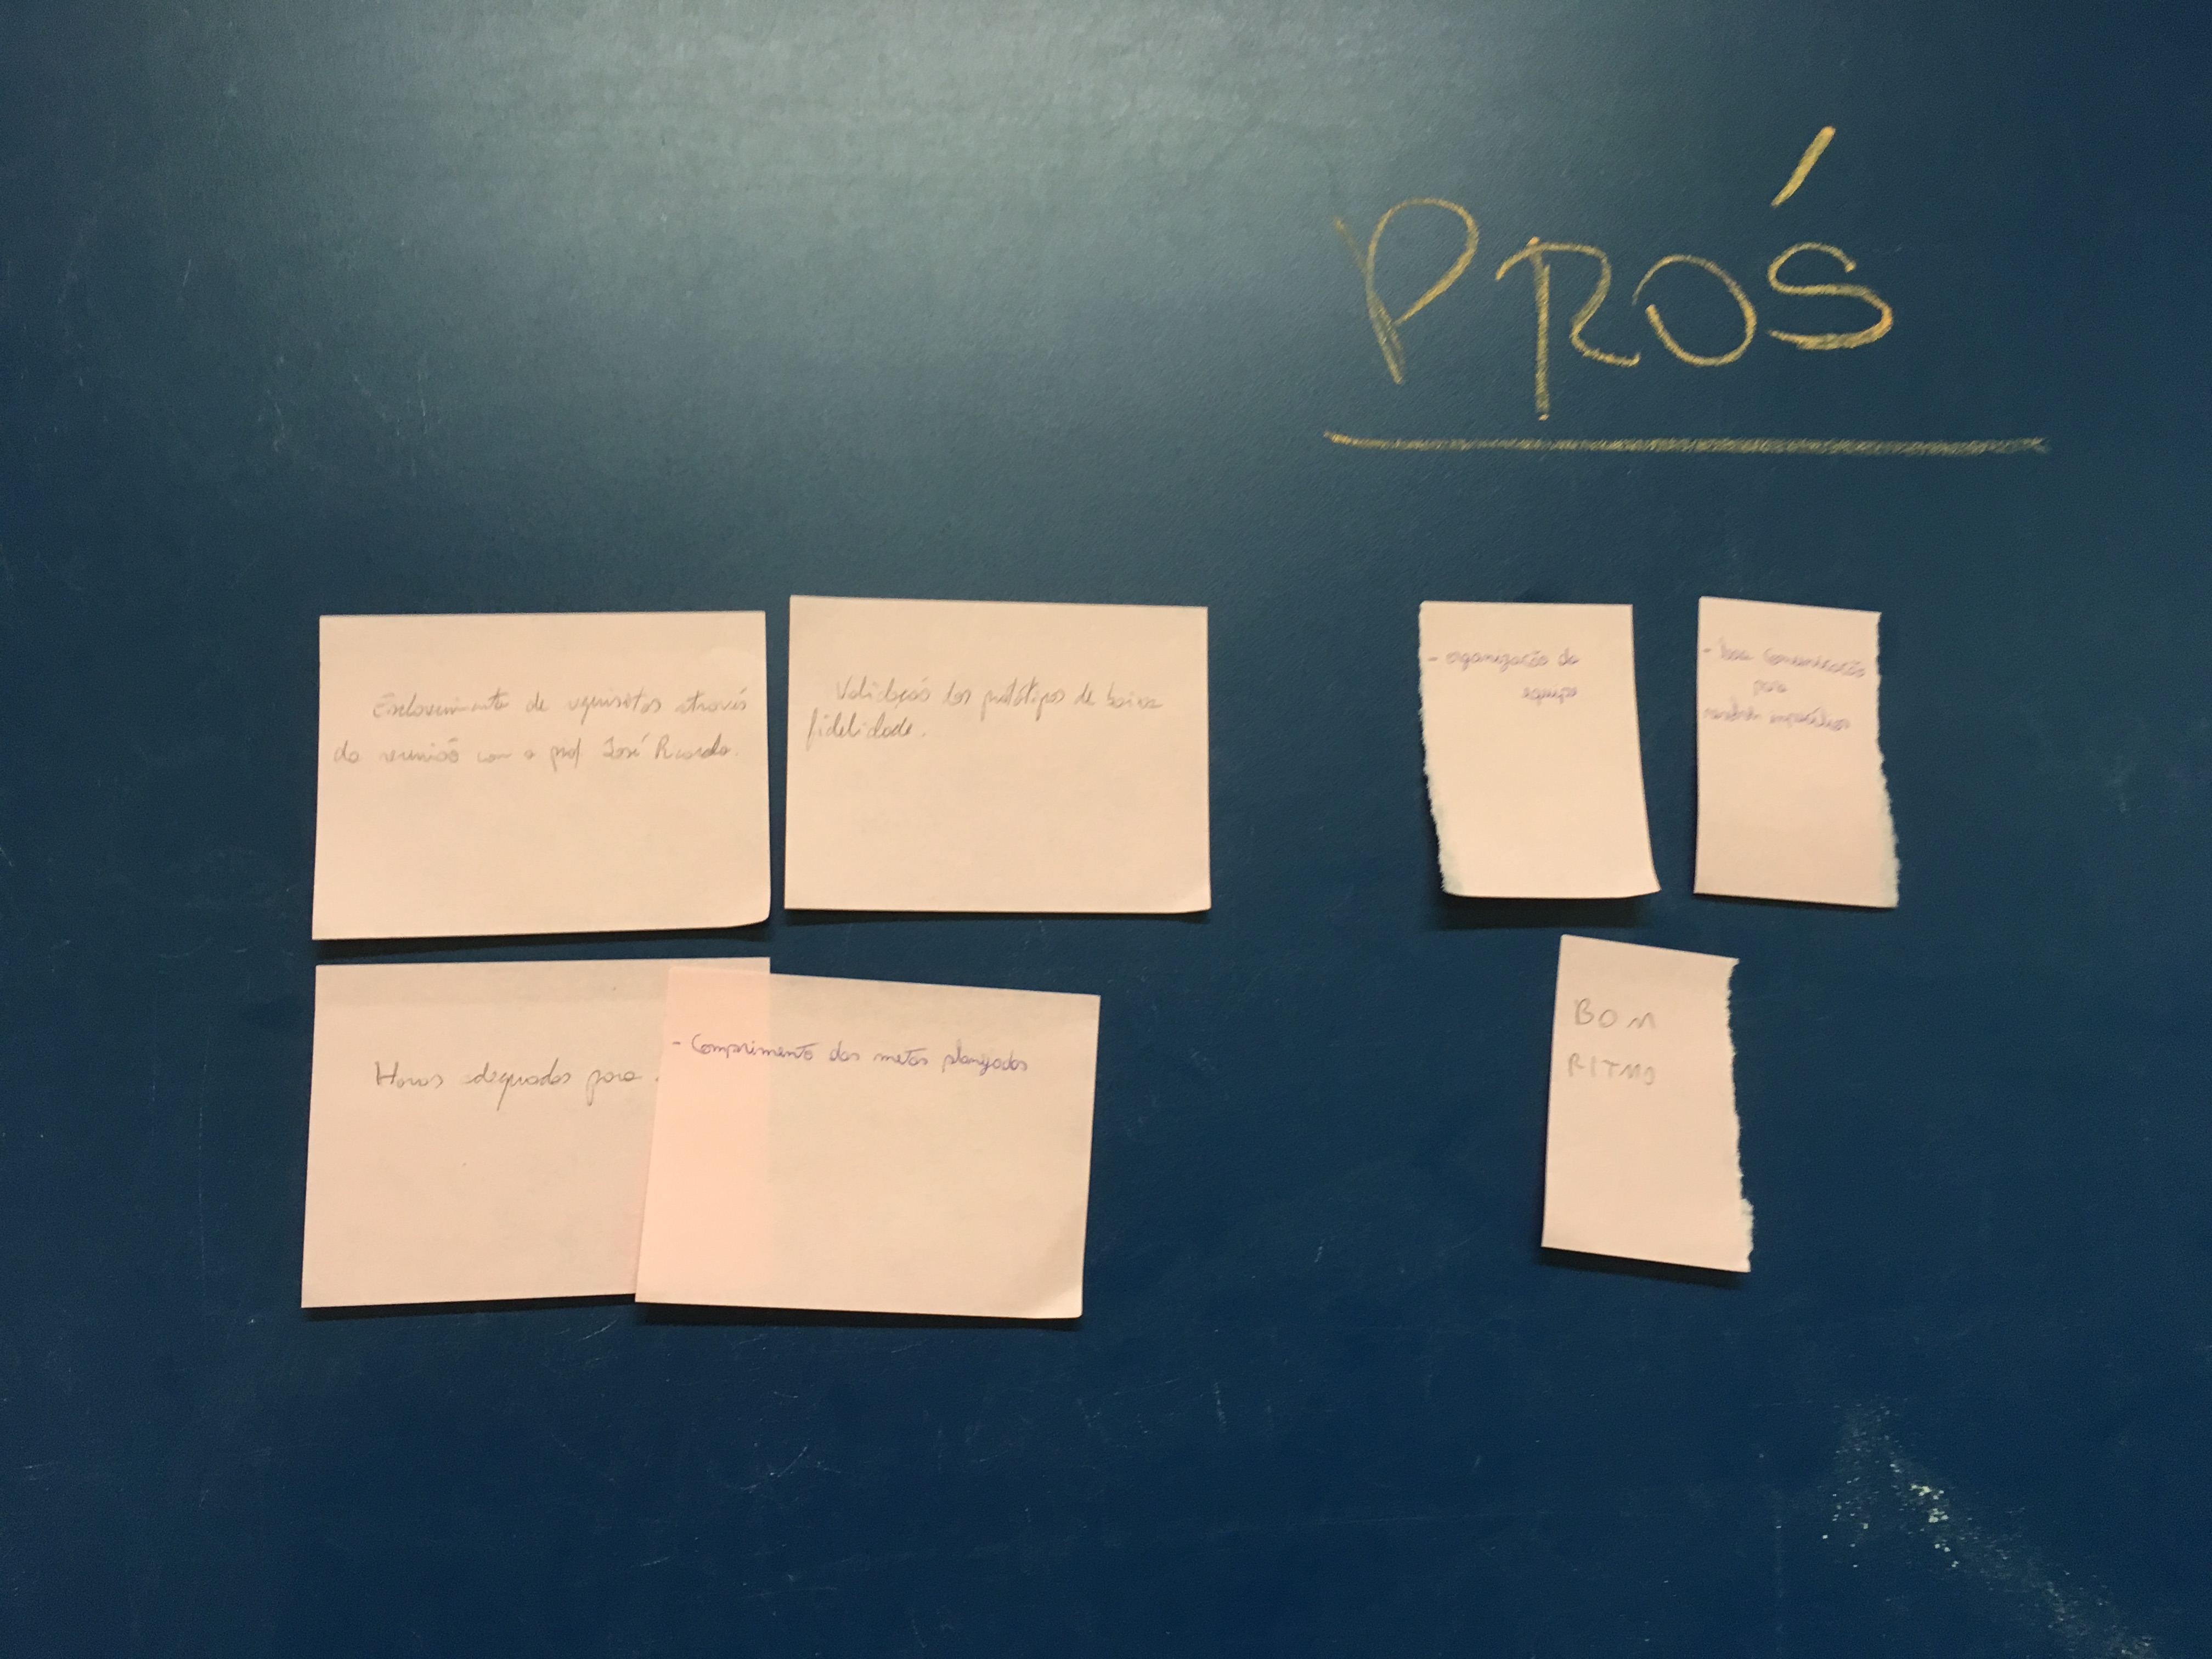 PRÓS
Esclarecimento de requisitos através
da reunião com o prof. José Ricardo.
Validação dos protótipos de baixa
fidelidade.
- organização da
equipe
- boa comunicação
para
resolver
Horas adequadas para
- Comprimento das metas planejadas
BOM
RITMO